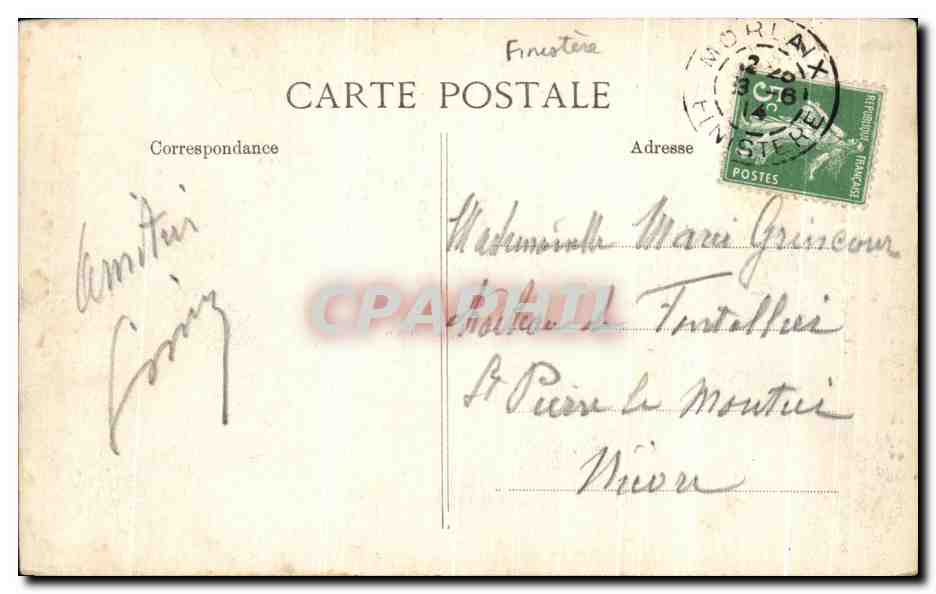 Finistère
CARTE POSTALE
MORLAIX
12 25
3 - 6
14
FINISTERE
5c
REPUBLIQUE FRANÇAISE
POSTES
Correspondance
Adresse
Mademoiselle Marie Grincour
Château de Fontallier
St Pierre le Moutier
Nièvre
CPAPHIL